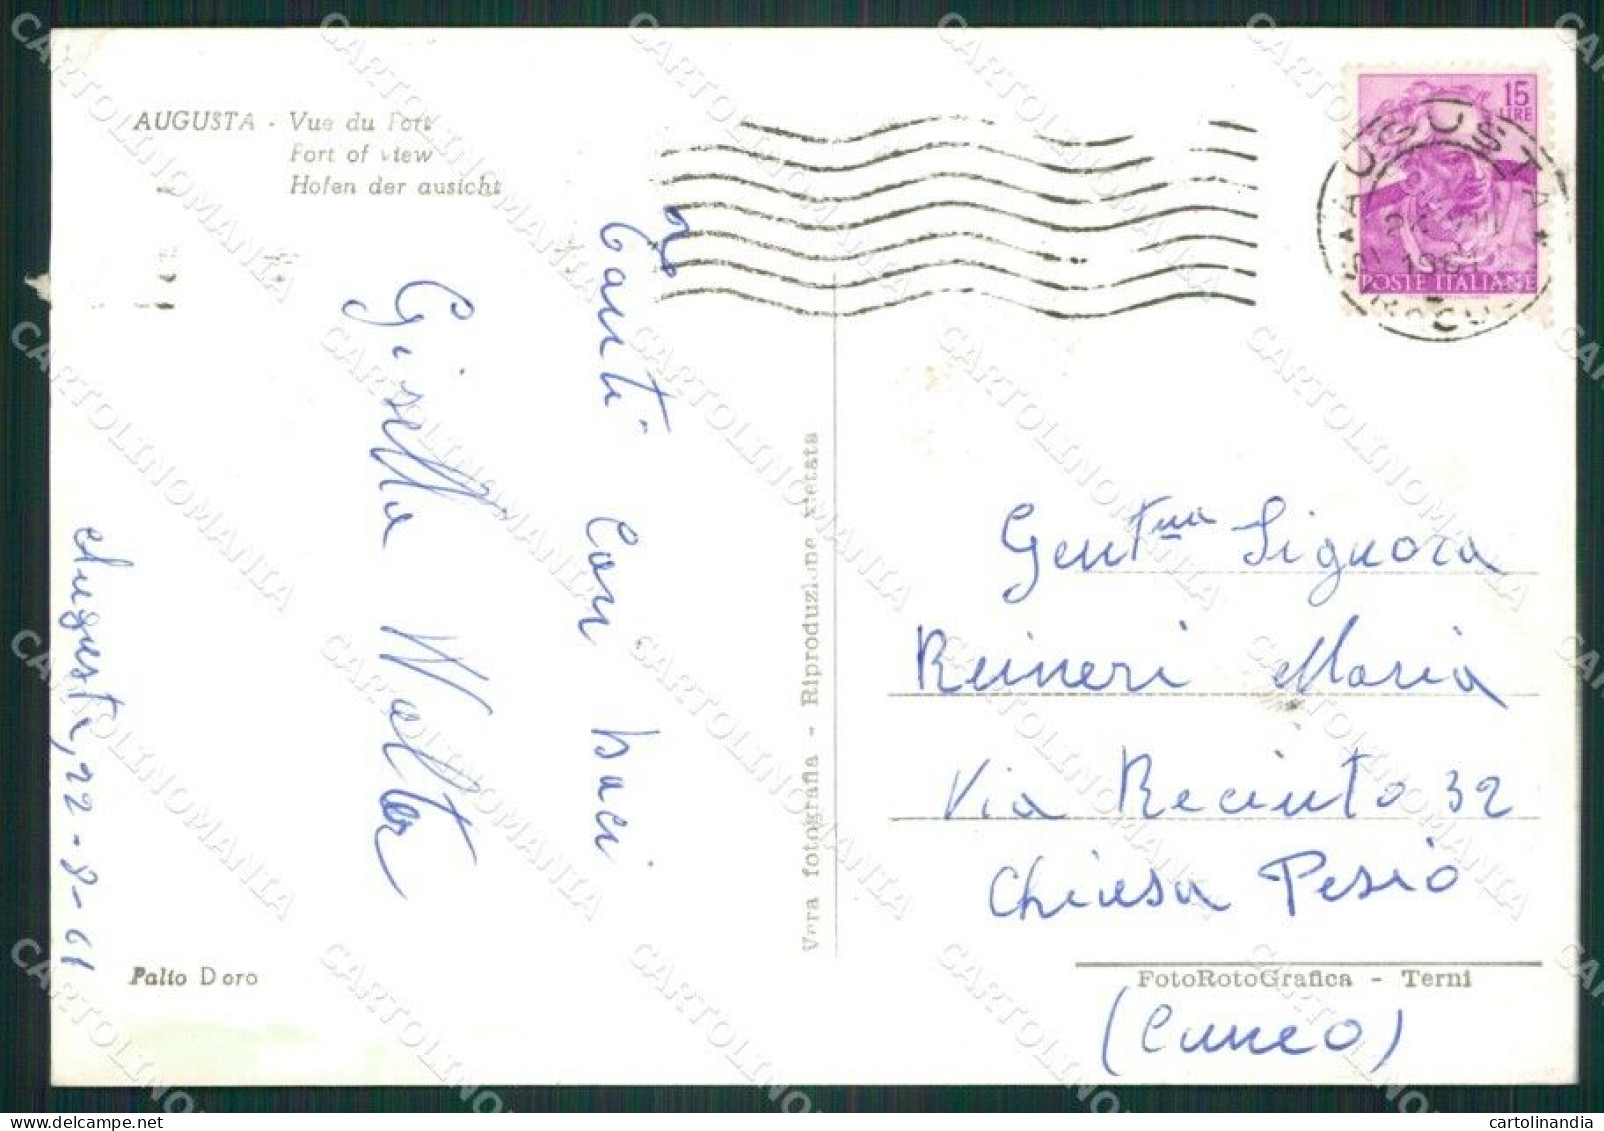 AUGUSTA - Vue du Port
Fort of view
Hofen der ausicht
15
LIRE
POSTE ITALIANE
AUGUSTA
1961
Tanti
Cari baci
Gisella Walter
Augusta, 22-8-61
Vera fotografia - Riproduzione vietata
Gent.ma Signora
Reineri Maria
Via Recinto 32
Chiesa Pesio
(Cuneo)
Palio Doro
FotoRotoGrafica - Terni
CARTOLINOMANIA
cartolinandia